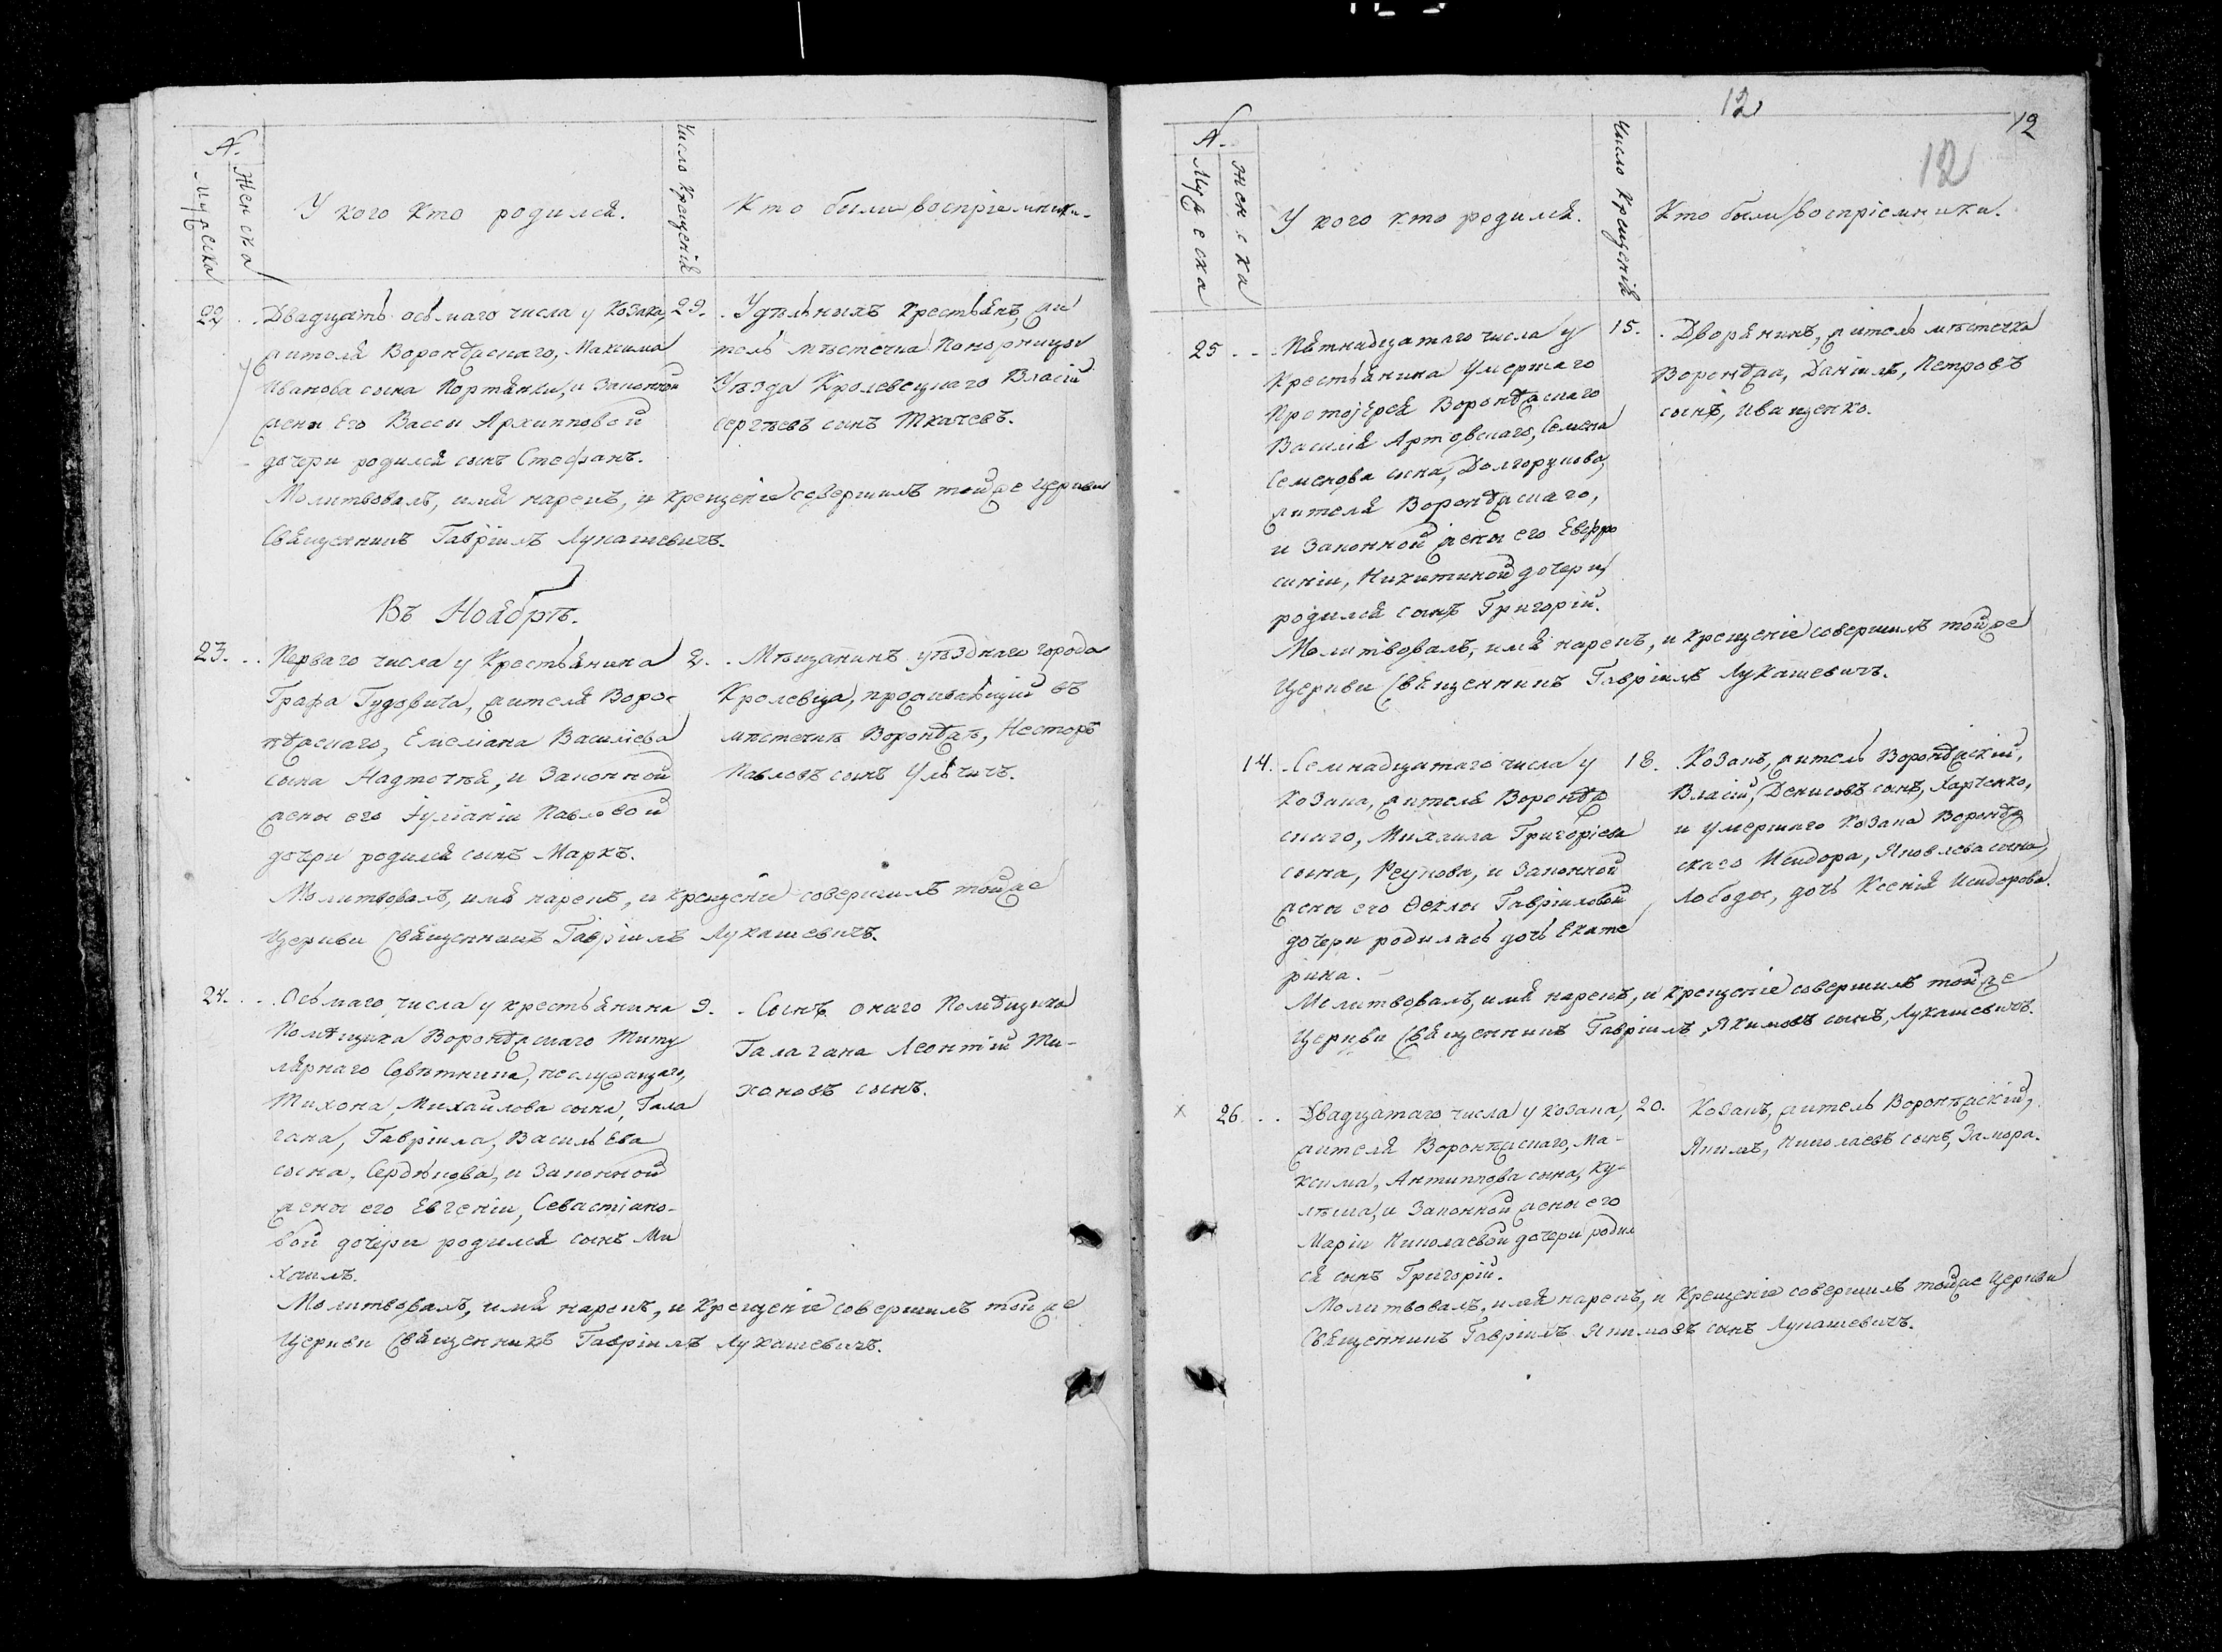 №.
Мужеска
Женска
У кого кто родился.
Число Крещенія
Кто были воспріемники.
22. Двадцать осьмаго числа у Козака,
жителя Воронѣжскаго, Максима
Иванова сына Портянки, и законной
жены его Вассы Архипповой
дочери родился сынъ Стефанъ.
29. Удѣльныхъ крестьянъ, жи
тель мѣстечка Понорницы
Уѣзда Кролевецкаго Власій
Сергѣевъ сынъ Ткачевъ.
Молитвовалъ, имя нарекъ, и крещеніе совершилъ тойже церкви
Священникъ Гавріилъ Лукашевичъ.
Въ Ноябрѣ.
23. Перваго числа у Крестьянина
Графа Гудовича, жителя Воро
нѣжскаго, Емеліана Василіева
сына Надточѣя, и Законной
жены его Іуліаніи Павловой
дочери родился сынъ Маркъ.
2. Мѣщанинъ уѣзднаго города
Кролевца, проживающій въ
мѣстечкѣ Воронѣжѣ, Несторъ
Павловъ сынъ Ульчичъ.
Молитвовалъ, имя нарекъ, и крещеніе совершилъ тойже
Церкви Священникъ Гавріилъ Лукашевичъ.
24. Осьмаго числа у крестьянина
Помѣщика Воронѣжскаго Титу
лярнаго Совѣтника, неслужащаго,
Тихона, Михайлова сына, Гала
гана, Гавріила, Васильева
сына, Сердюкова, и Законной
жены его Евгеніи, Севастіано-
вой дочери родился сынъ Ми
хаилъ.
9. Сынъ онаго Помѣщика
Галагана Леонтій Ти-
хоновъ сынъ.
Молитвовалъ, имя нарекъ, и Крещеніе совершилъ тойже
Церкви Священникъ Гавріилъ Лукашевичъ.
12
12
12
№.
Мужеска
Женска
У кого кто родился.
Число Крещенія
Кто были воспріемники.
25. Пятнадцатаго числа у
Крестьянина умершаго
Протоіерея Воронѣжскаго
Василія Артовскаго, Семена
Семенова сына, Долгорукова,
жителя Воронѣжскаго,
и Законной жены его Евфро
синіи, Никитиной дочери,
родился сынъ Григорій.
15. Дворянинъ, житель мѣстечка
Воронѣжа, Даніилъ, Петровъ
сынъ, Иващенко.
Молитвовалъ, имя нарекъ, и крещеніе совершилъ тойже
Церкви Священникъ Гавріилъ Лукашевичъ.
14. Семнадцатаго числа у
Козака, жителя Воронѣж
скаго, Михаила Григоріева
сына, Реунова, и Законной
жены его Ѳеклы Гавріиловой
дочери родилась дочь Екате
рина.
18. Козакъ, житель Воронѣжскій,
Власій, Денисовъ сынъ, Харченко,
и умершаго Козака Воронѣж
скаго Исидора, Яковлева сына,
Лободы, дочь Ксенія Исидорова.
Молитвовалъ, имя нарекъ, и крещеніе совершилъ тойже
Церкви Священникъ Гавріилъ, Якимовъ сынъ, Лукашевичъ.
26. Двадцатаго числа у козака,
жителя Воронѣжскаго, Ма-
ксима, Антиппова сына, Ку-
лѣша, и Законной жены его
Маріи Николаевой дочери родил
ся сынъ Григорій.
20. Козакъ, житель Воронѣжскій,
Якимъ, Николаевъ сынъ, Замора.
Молитвовалъ, имя нарекъ, и Крещеніе совершилъ тойже Церкви
Священникъ Гавріилъ Якимовъ сынъ Лукашевичъ.